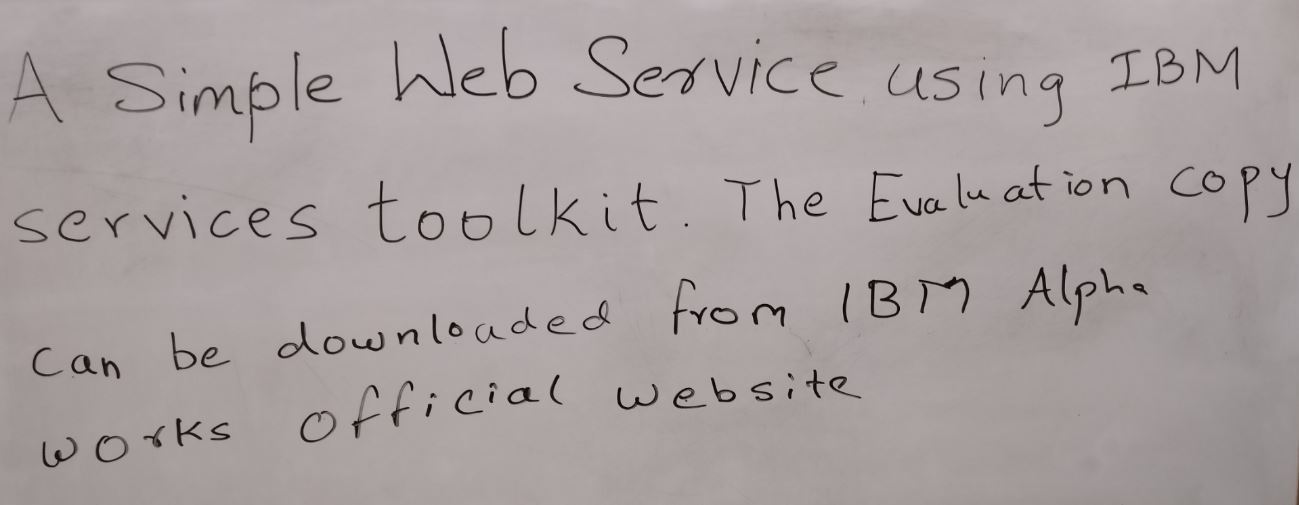 A Simple Web Service using IBM
services toolkit. The Evaluation copy
can be downloaded from IBM Alpha
works official website